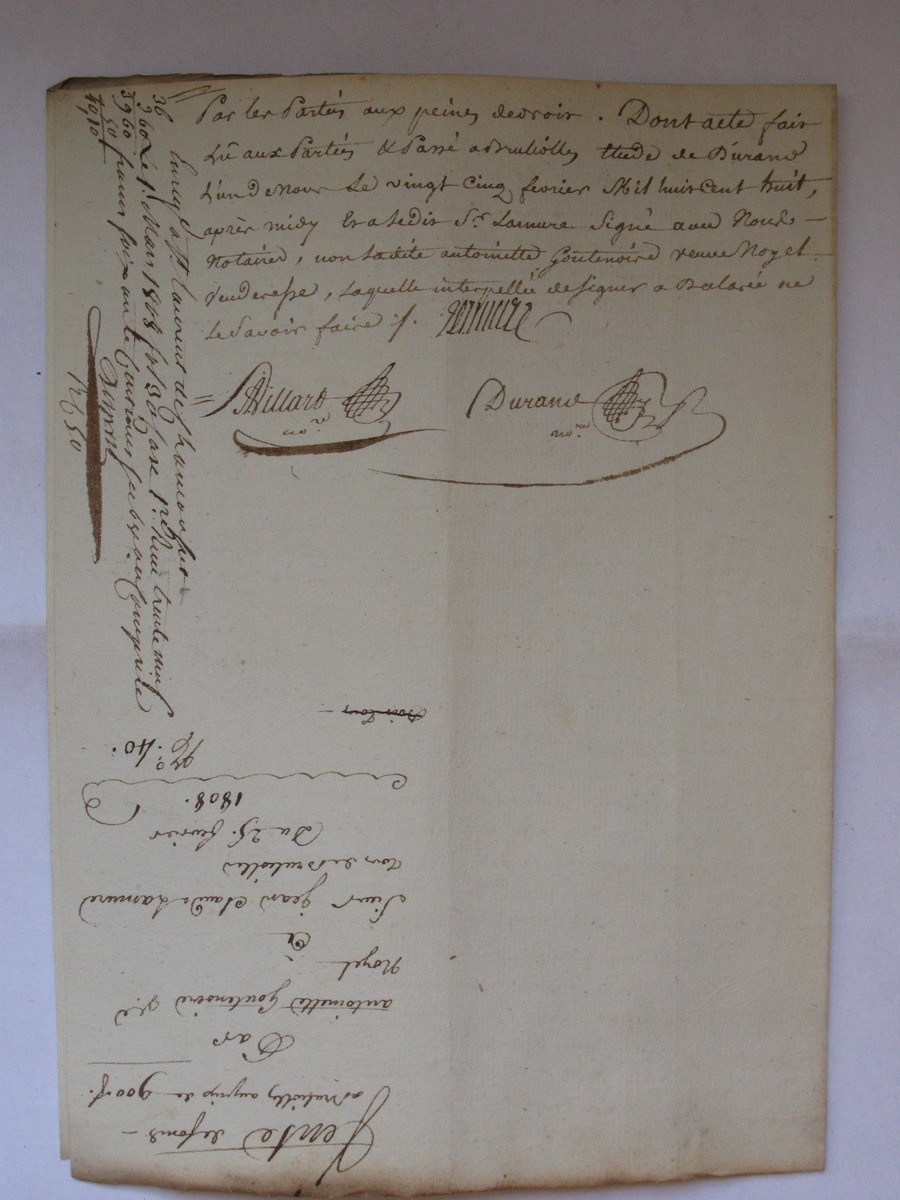 Par les Parties aux peines de droit. Dont acte fait
Lû aux Parties & Passé a Brullolles Etude de Durand
L'un de Nous Le vingt Cinq fevrier Mil huit cent huit,
après midy Et a Ledit Sr. Lamure Signé avec Nous
Notaires, non Ladite antoinette Goutenoire veuve Noyel
Venderesse, Laquelle interpellée de signer a Declarée ne
Le Savoir faire ./. Lamure
Villard Durand
nore nore
Enregé a St Laurent de Chamousset
Le 1r. Mars 1808 fo 30 Case 1re
francs soixante Centimes Subvon Comprise
36
3 960
3960
50
4010
No. 40.
Vente de fonds
a Brullolles au prix de 900 f.
Par
antoinette Goutenoire Ve
Noyel
à
Sieur jean Claude Lamure
de Brullolles
Du 25. fevrier
1808.